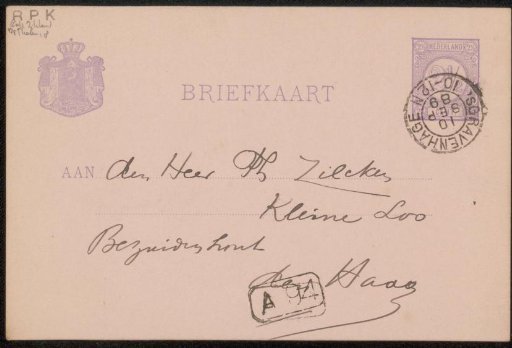 RPK
BRIEFKAART
NEDERLAND
'SGRAVENHAGE
10 SEP 89
10-12 N
AAN den Heer Ph Zilcken
Kleine Loo
Bezuidenhout
den Haag
A 94